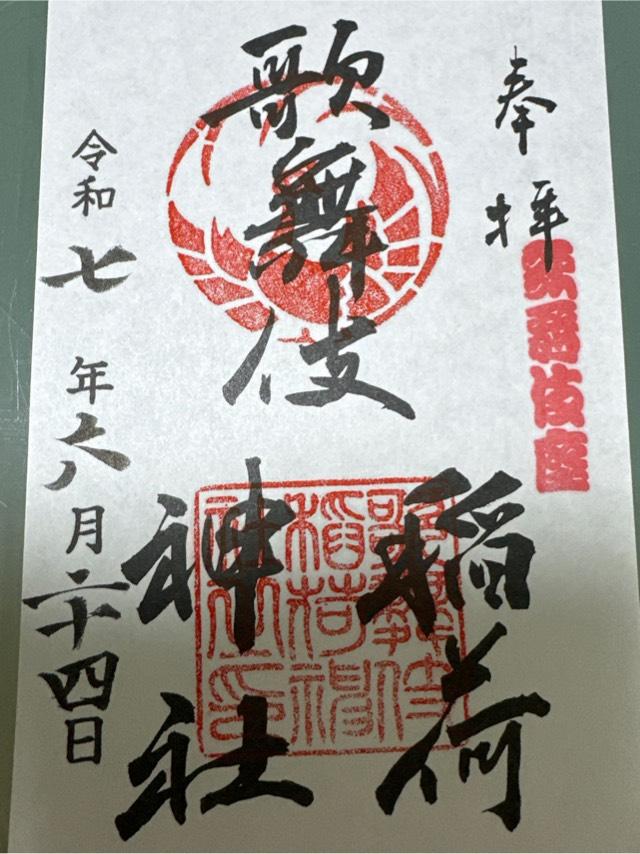 奉拝
歌舞伎座
歌舞伎
稲荷
神社
歌舞伎
稲荷神
社印
令和七年六月二十四日